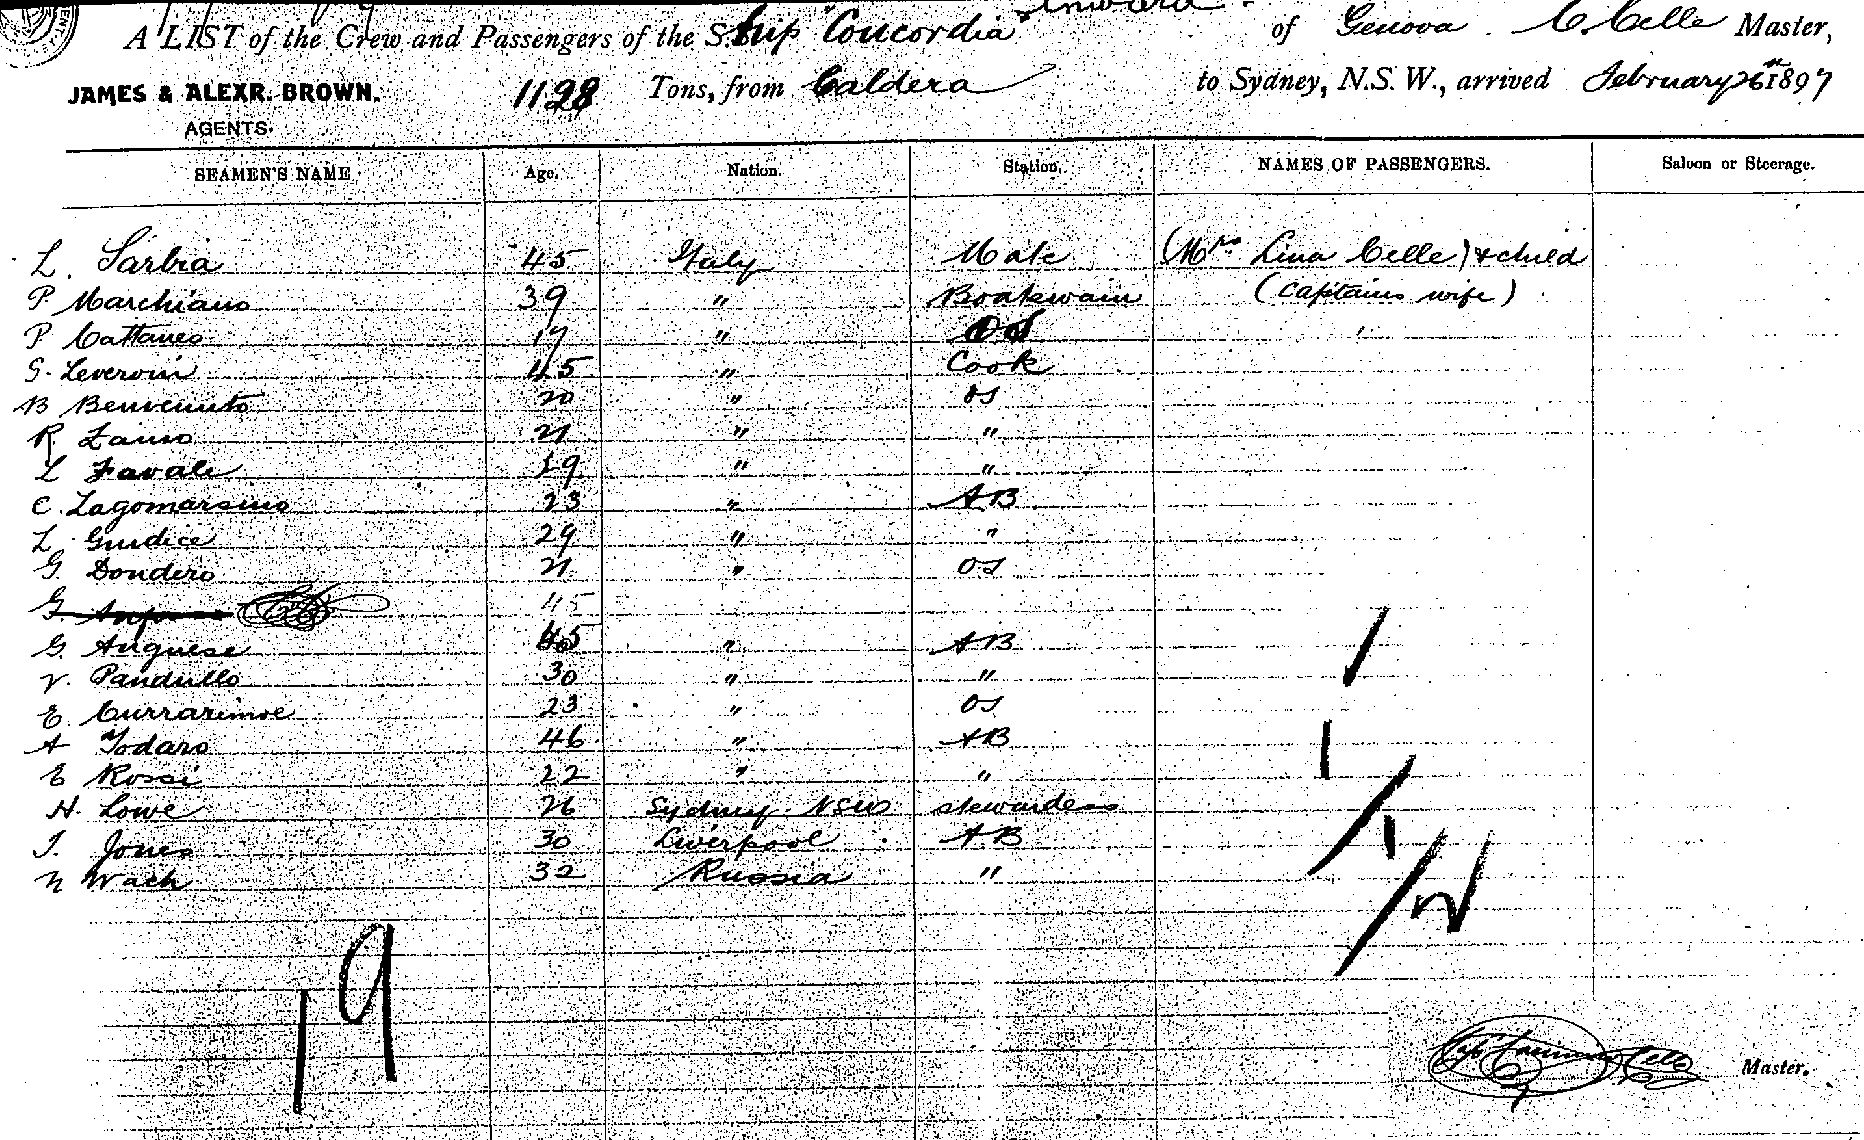 Inward
A LIST of the Crew and Passengers of the S. Ship "Concordia" of Genova C. Celle Master,
JAMES & ALEXR. BROWN. 1128 Tons, from Caldera to Sydney, N.S.W., arrived February 26th 1897
AGENTS.
SEAMEN'S NAME Age. Nation. Station. NAMES OF PASSENGERS. Saloon or Steerage.
L. Sarbia 45 Italy Mate (Mrs Lina Celle) & child
P Marchiano 39 " Boatswain (Captains wife)
P Cattaneo 17 " OS
G. Leveroni 45 " Cook
B Benvenuto 20 " OS
R. Zaino 21 " "
L Favale 19 " "
C. Lagomarsino 23 " AB
L. Guidice 29 " "
G Dondero 21 " OS
G 45
G. Anguese 45 " AB
V. Pandullo 30 " "
E. Currarinoe 23 " OS
A Todaro 46 " AB
E Rossi 22 " "
H. Lowe 26 Sydney NSW stewardess
J. Jones 30 Liverpool AB
N Wach 32 Russia "
19
Celle Master.